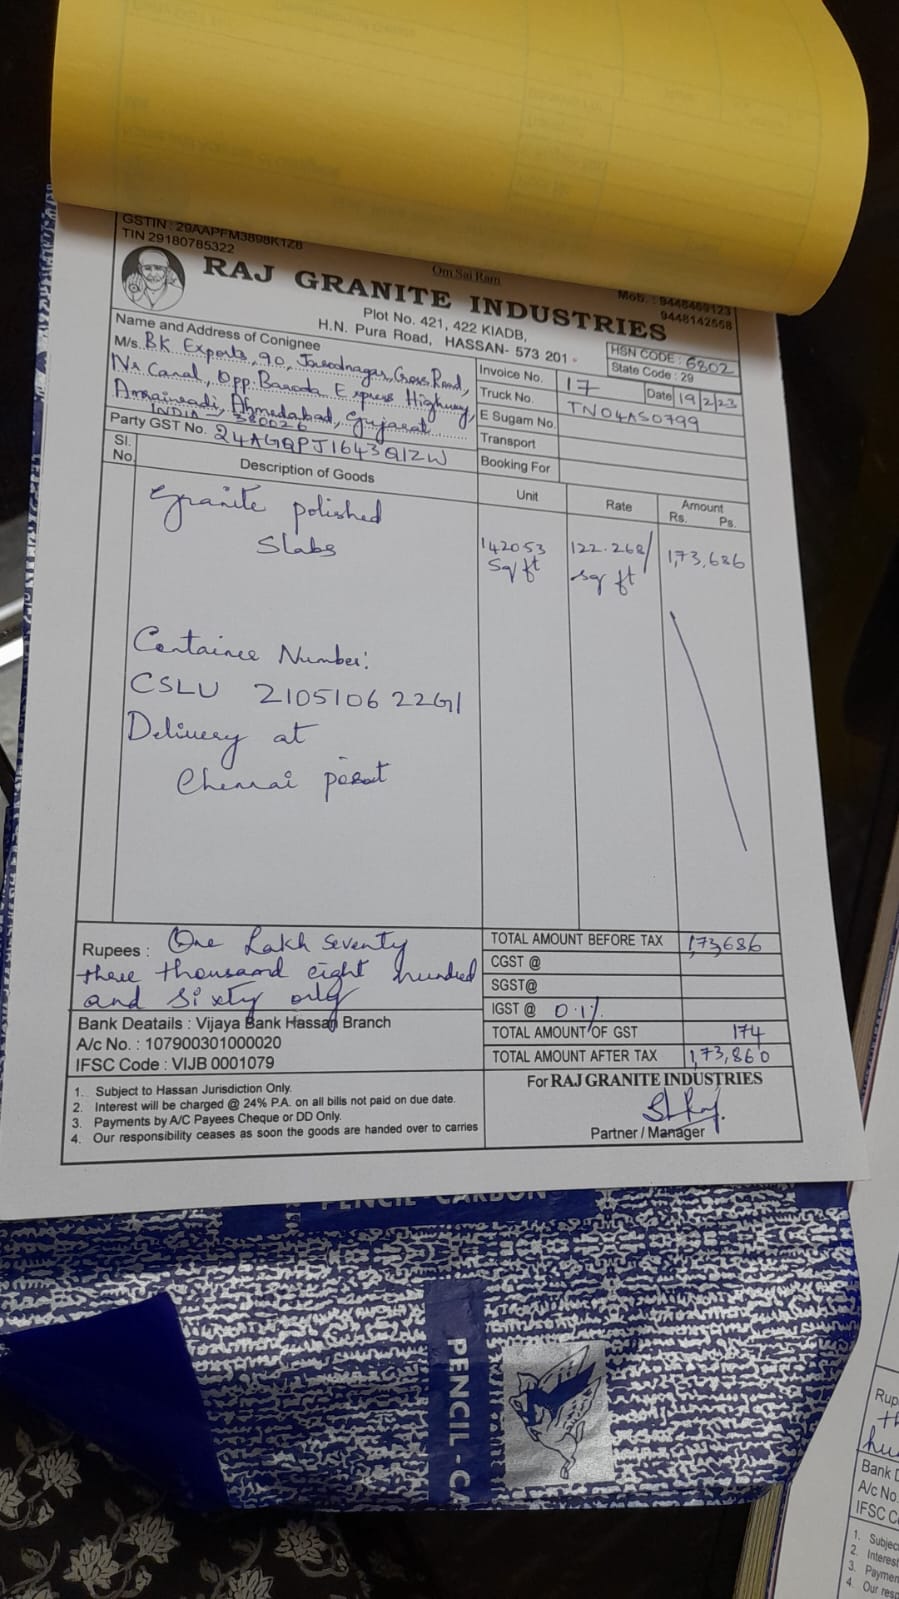 GSTIN : 29AAPFM3898K1Z8
TIN 29180785322
Om Sai Ram
Mob. : 9448469123
9448142568
RAJ GRANITE INDUSTRIES
Plot No. 421, 422 KIADB,
H.N. Pura Road, HASSAN- 573 201
HSN CODE : 6802
State Code : 29
Name and Address of Conignee
M/s. BK Exports, 90, Cross Road,
Nr Canal, Opp. Baroda Express Highway,
Ahmedabad, Gujarat
INDIA 380026
Party GST No. 24AGQPJ1643Q1ZW
Invoice No. 17
Date 19/2/23
Truck No. TN04AS0799
E Sugam No.
Transport
Booking For
Sl. No.
Description of Goods
Unit
Rate
Amount
Rs. Ps.
Granite polished
Slabs
142053
Sq ft
122.268/
sq ft
1,73,686
Container Number:
CSLU 2105106 22G1
Delivery at
Chennai port
Rupees : One Lakh Seventy
three thousand eight hundred
and sixty only
TOTAL AMOUNT BEFORE TAX 1,73,686
CGST @
SGST@
IGST @ 0.1%
TOTAL AMOUNT OF GST 174
TOTAL AMOUNT AFTER TAX 1,73,860
Bank Deatails : Vijaya Bank Hassan Branch
A/c No. : 107900301000020
IFSC Code : VIJB 0001079
1. Subject to Hassan Jurisdiction Only.
2. Interest will be charged @ 24% P.A. on all bills not paid on due date.
3. Payments by A/C Payees Cheque or DD Only.
4. Our responsibility ceases as soon the goods are handed over to carries
For RAJ GRANITE INDUSTRIES
Partner / Manager
PENCIL-CARBON
PENCIL-CA
Rup
Bank D
A/c No.
IFSC C
1. Subjec
2. Interes
3. Paymen
4. Our resp